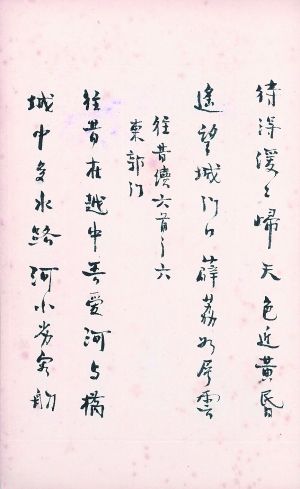 待得緩々歸天色近黃昏
遙望城門口薜荔如雲
往昔續六首之六
東郭門
往昔在越中吾愛河与橋
城中多水路河小劣容舠